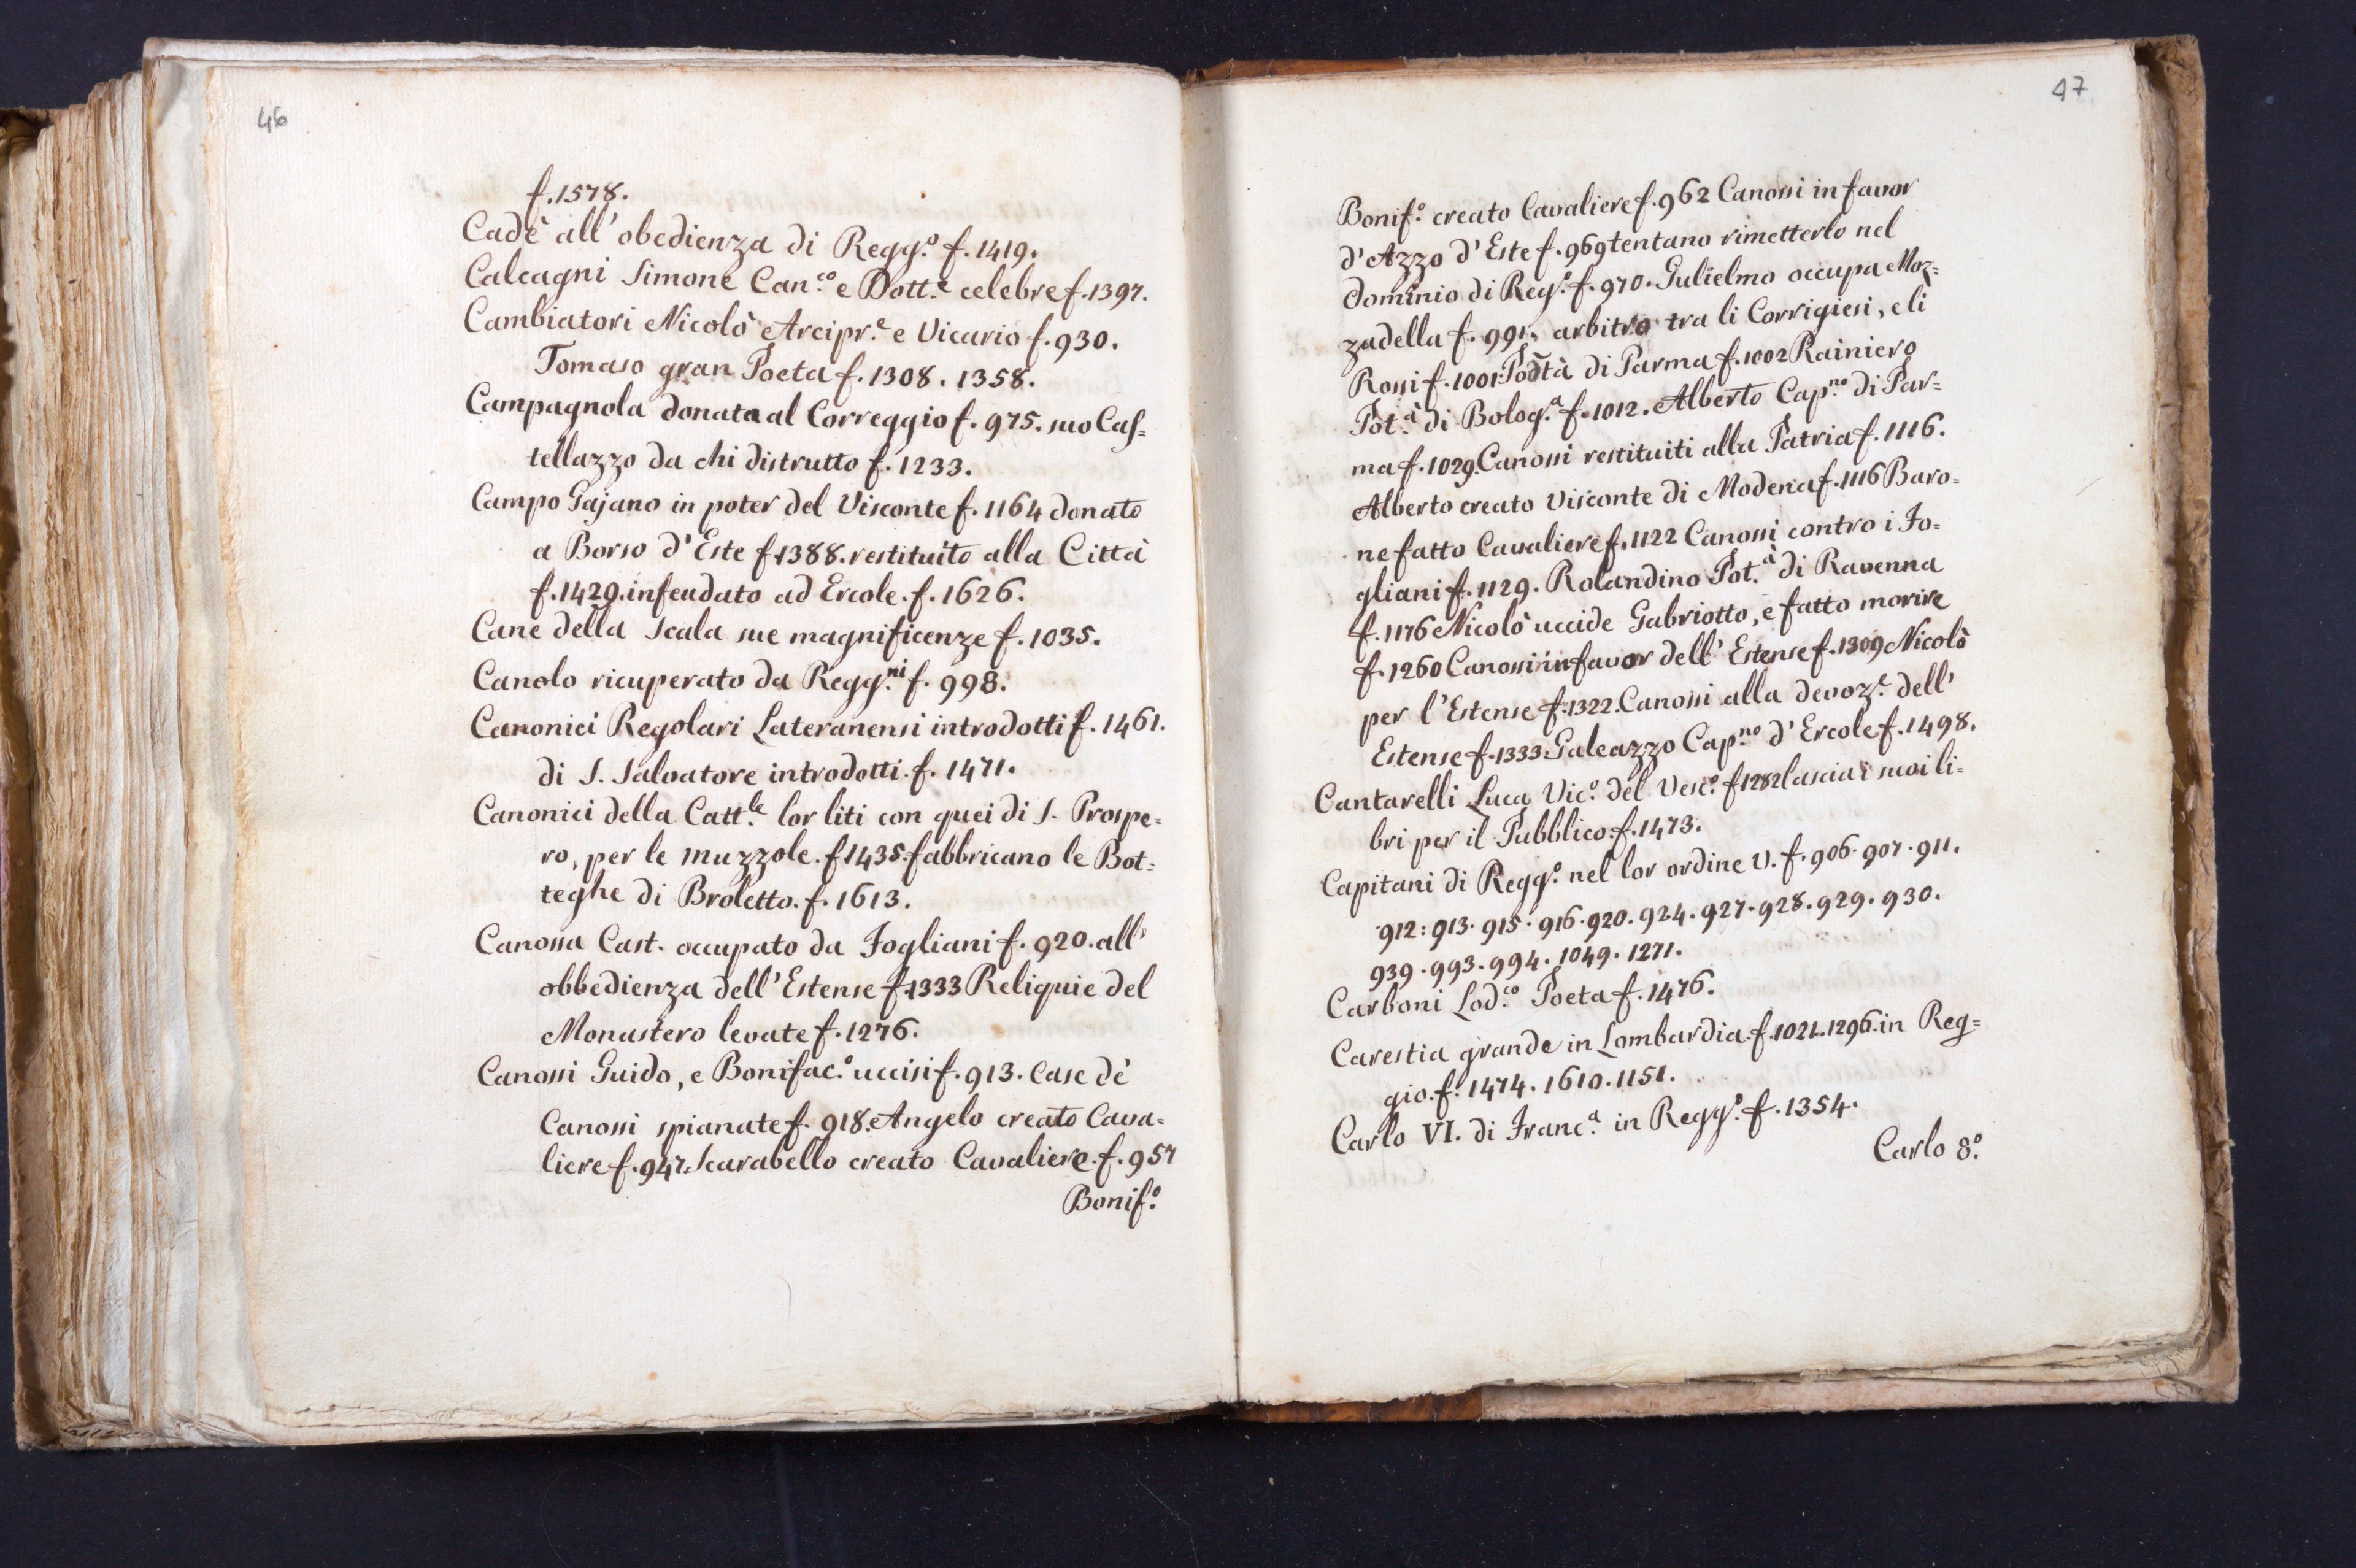 46
f. 1578.
Cadè all' obedienza di Regg.º f. 1419.
Calcagni Simone Can.co e Dott.e celebre f. 1397.
Cambiatori Nicolò Arcipr.e e Vicario f. 930.
Tomaso gran Poeta f. 1308. 1358.
Campagnola donata al Correggio f. 975. suo Cas=
tellazzo da chi distrutto f. 1233.
Campo Gajano in poter del Visconte f. 1164 donato
a Borso d' Este f. 1388. restituito alla Città
f. 1429. infeudato ad Ercole. f. 1626.
Cane della Scala sue magnificenze f. 1035.
Canolo ricuperato da Regg.ni f. 998.
Canonici Regolari Lateranensi introdotti f. 1461.
di S. Salvatore introdotti. f. 1471.
Canonici della Catt.le lor liti con quei di S. Prospe=
ro, per le muzzole. f. 1435. fabbricano le Bot=
teghe di Broletto. f. 1613.
Canossa Cast. occupato da Fogliani f. 920. all'
obbedienza dell' Estense f. 1333 Reliquie del
Monastero levate f. 1276.
Canossi Guido, e Bonifac.º uccisi f. 913. Case dè
Canossi spianate f. 918. Angelo creato Cava=
liere f. 947. Scarabello creato Cavaliere. f. 957
Bonif.º
47
Bonif.º creato Cavaliere f. 962 Canossi in favor
d' Azzo d' Este f. 969 tentano rimetterlo nel
dominio di Reg.º f. 970. Gulielmo occupa Moz=
zadella f. 991. arbitro tra li Corrigiesi, e li
Rossi f. 1001. Podtà di Parma f. 1002 Rainiero
Pot.à di Bolog.a f. 1012. Alberto Cap.no di Par=
ma f. 1029. Canossi restituiti alla Patria f. 1116.
Alberto creato Visconte di Modena f. 1116 Baro=
ne fatto Cavaliere f. 1122 Canossi contro i Fo=
gliani f. 1129. Rolandino Pot.à di Ravenna
f. 1176 Nicolò uccide Gabriotto, e fatto morire
f. 1260 Canossi in favor dell' Estense f. 1309 Nicolò
per l' Estense f. 1322. Canossi alla devoz.e dell'
Estense f. 1333. Galeazzo Cap.no d' Ercole f. 1498.
Cantarelli Luca Vic.º del Vesc.º f 1282 lascia i suoi li=
bri per il Pubblico. f. 1473.
Capitani di Regg.º nel lor ordine V. f. 906. 907. 911.
912: 913. 915. 916. 920. 924. 927. 928. 929. 930.
939. 993. 994. 1049. 1271.
Carboni Lod.co Poeta f. 1476.
Carestia grande in Lombardia. f. 1021. 1296. in Reg=
gio. f. 1474. 1610. 1151.
Carlo VI. di Franc.a in Regg.º f. 1354.
Carlo 8.º